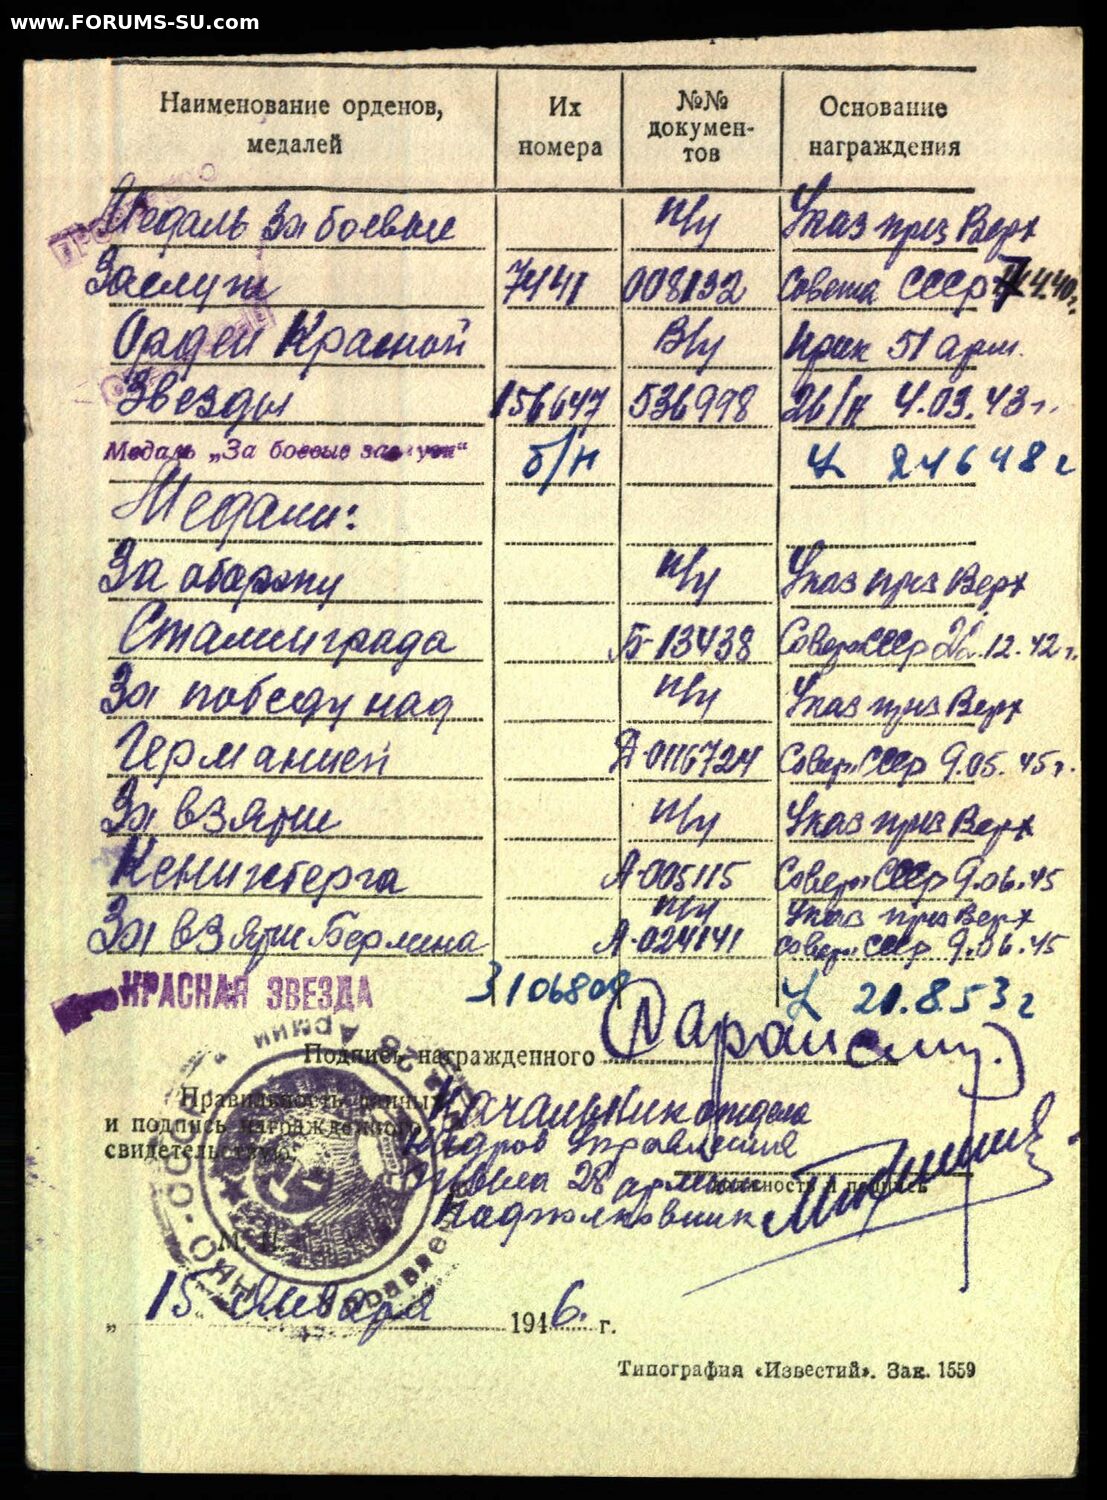 www.FORUMS-SU.com
Наименование орденов, медалей Их номера №№ документов Основание награждения
Медаль За боевые п/у Указ през Верх
Заслуги 7441 008132 Совета СССР 4.40г.
Орден Красной В/у Прик 51 арм.
Звезды 156647 536998 26/н 4.03.43г.
Медаль „За боевые заслуги“ б/н
Медали:
За оборону п/у Указ през Верх
Сталинграда Б-13438 Совет СССР 22.12.42г.
За победу над п/у Указ през Верх
Германией 0116724 Совет СССР 9.05.45г.
За взятие п/у Указ през Верх
Кенигсберга А-005115 Совет СССР 9.06.45
За взятие Берлина п/у А-024141 Указ през Верх Совет СССР 9.06.45
КРАСНАЯ ЗВЕЗДА 21.8.53г
Подпись награжденного
Правильность данных
и подпись награжденного
свидетельствую:
Начальник отдела
кадров Управления
28 армии
Подполковник
должность и подпись
М. П.
„ 15 января 1946. г.
Типография «Известий». Зак. 1559